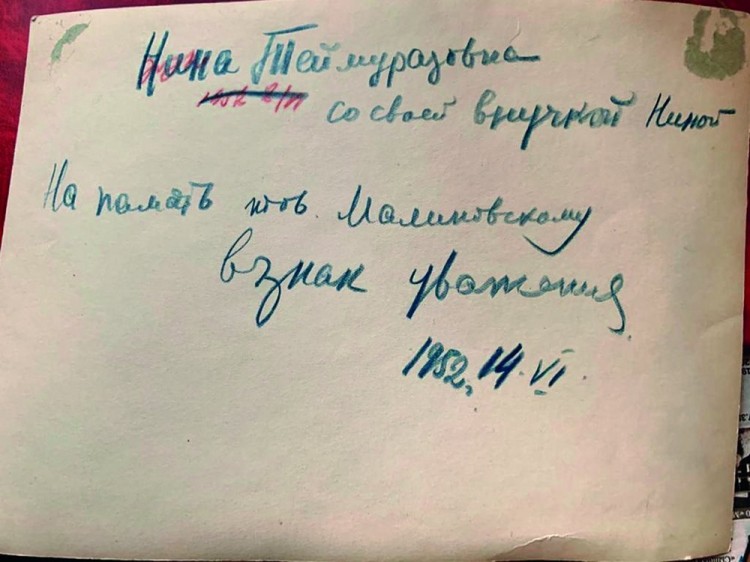 Нина Теймуразовна
со своей внучкой Ниной
На память тов. Малиновскому
в знак уважения
1952, 14. VI.